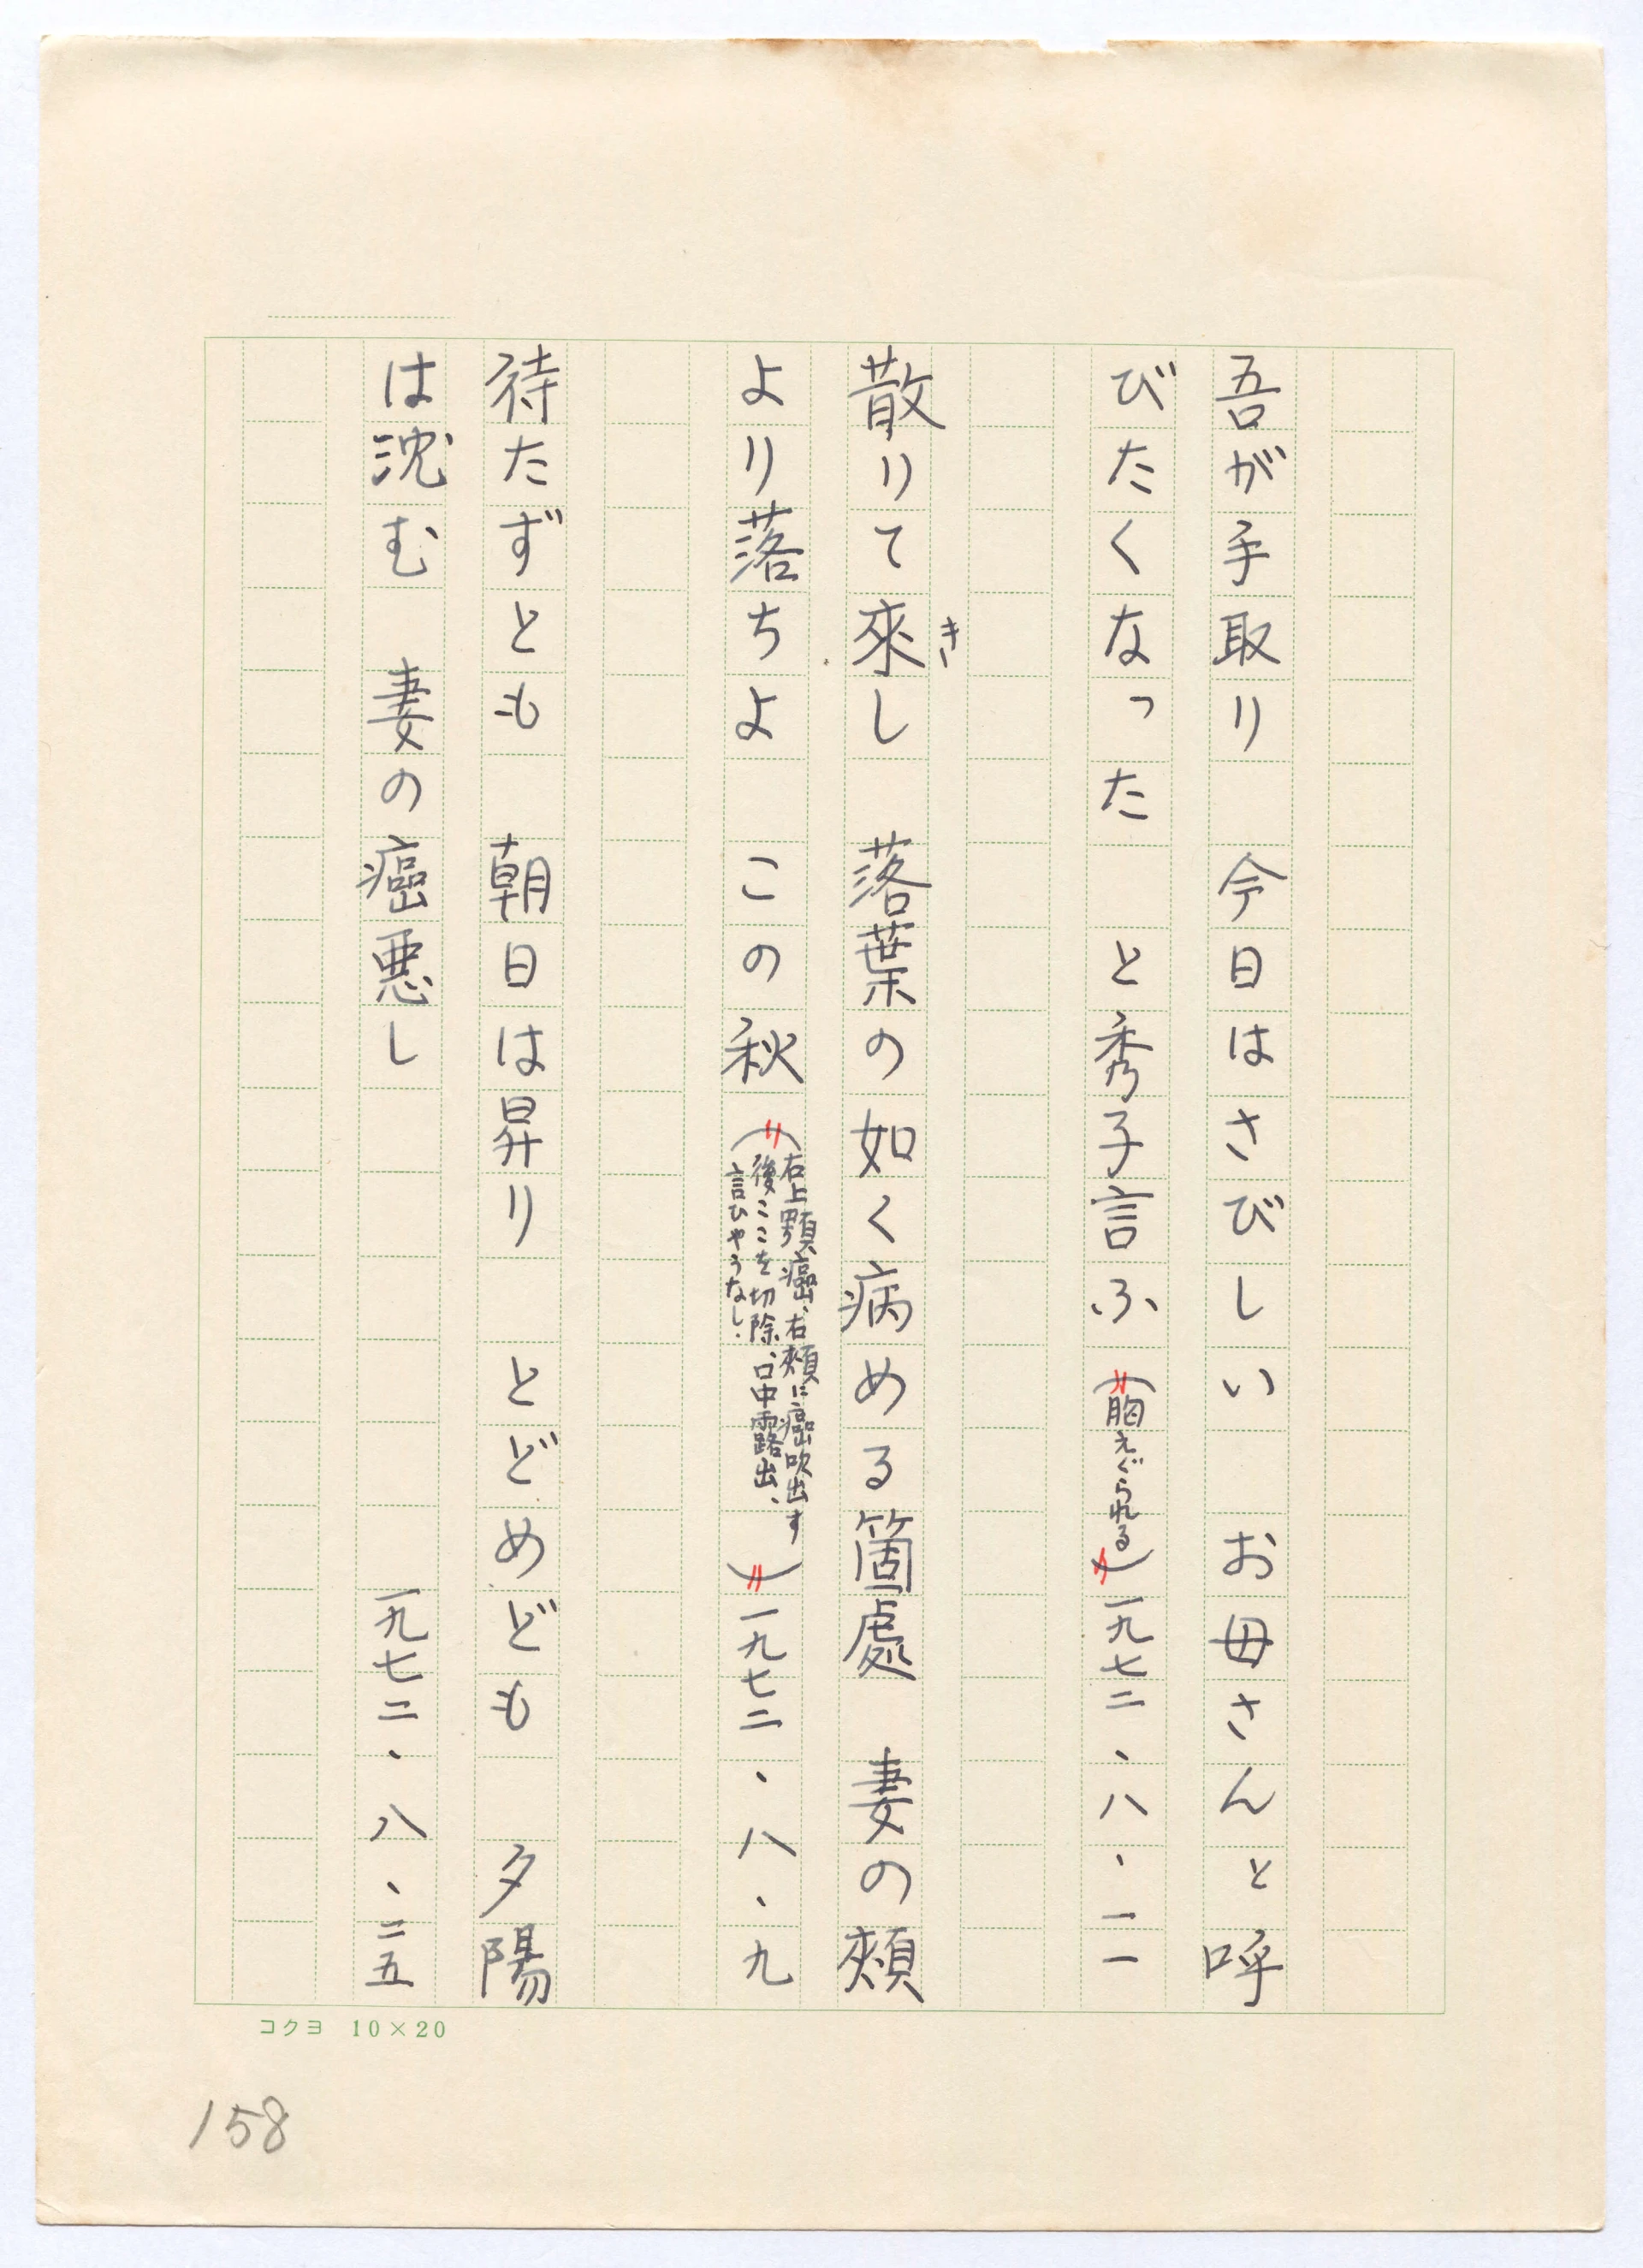 吾が手取り　今日はさびしい　お母さんと呼
びたくなった　と秀子言ふ（胸えぐられる）一九七二、八、一一
散りて來し　落葉の如く病める箇處　妻の頰
き
より落ちよ　この秋（右上顎癌、右頰に癌吹出す
後ここを切除、口中露出、
言ひやうなし.）一九七二、八、九
待たずとも　朝日は昇り　とどめども　夕陽
は沈む　妻の癌悪し　一九七二、八、二五
コクヨ 10×20
158